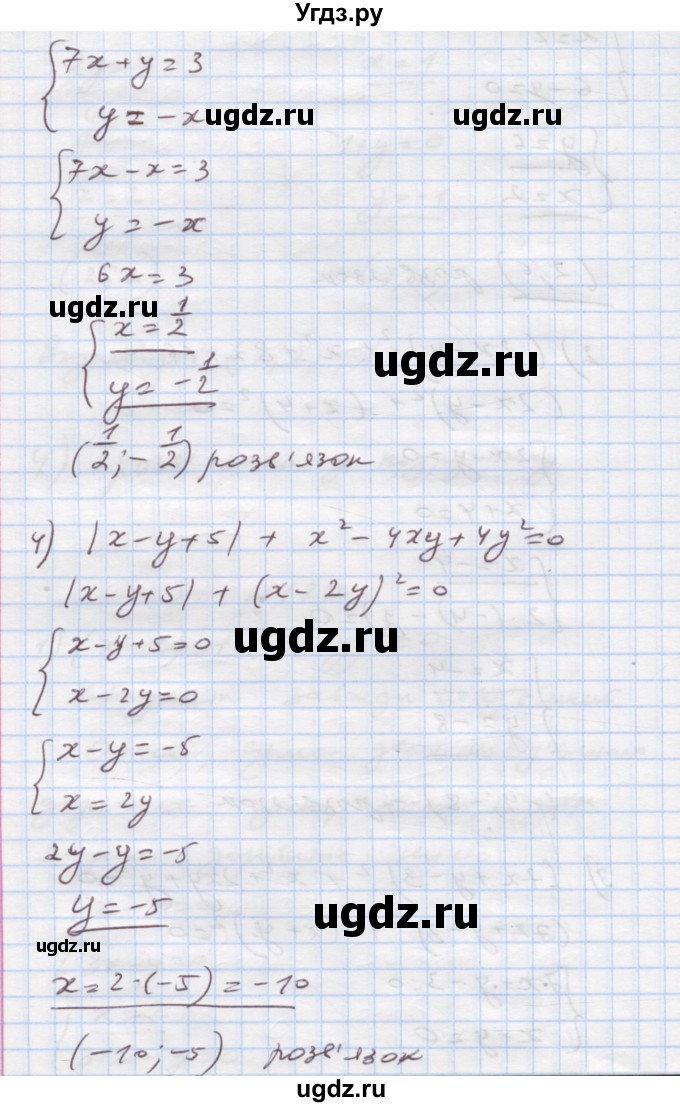 Угдз.ру
7x + y = 3
y = -x ugdz.ru ugdz.ru
7x - x = 3
y = -x
6x = 3
ugdz.ru
x = 1/2
ugdz.ru
y = -1/2
(1/2; -1/2) розв'язок
4) |x - y + 5| + x² - 4xy + 4y² = 0
|x - y + 5| + (x - 2y)² = 0
x - y + 5 = 0 ugdz.ru
x - 2y = 0
x - y = -5
x = 2y
2y - y = -5
y = -5 ugdz.ru
ugdz.ru
x = 2·(-5) = -10
(-10; -5) розв'язок
ugdz.ru